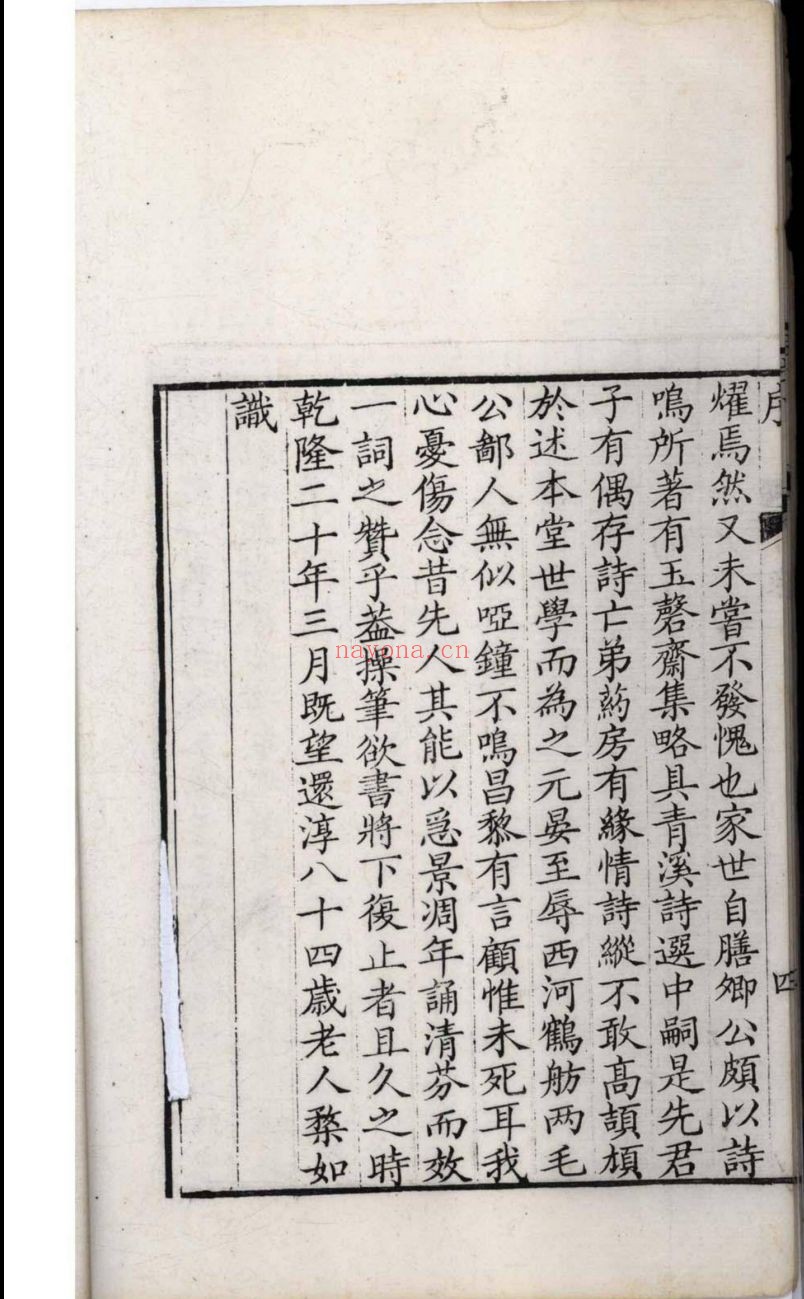 序
四
燿焉然又未嘗不發愧也家世自膳卿公頗以詩
鳴所著有玉磬齋集略具青溪詩選中嗣是先君
子有偶存詩亡弟葯房有緣情詩縱不敢高頡頏
於述本堂世學而為之元晏至辱西河鶴舫两毛
公鄙人無似啞鐘不鳴昌黎有言顧惟未死耳我
心憂傷念昔先人其能以急景凋年誦清芬而效
一詞之贊乎葢操筆欲書將下復止者且久之時
乾隆二十年三月既望還淳八十四歲老人楘如
識
nayona.cn